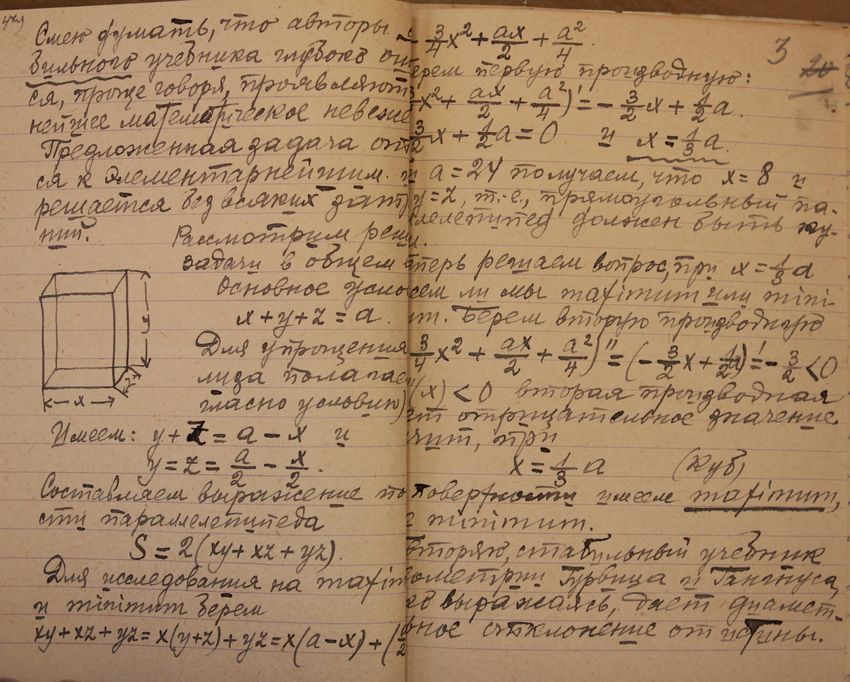 Смею думать, что авторы
бильного учебника глубоко
ся, проще говоря, проявляют
нейшее математическое невеже
Предложенная задача
ся к элементарнейшим. и
решается без всяких
ний.
Рассмотрим реш
задачи в общем
Основное усло
x + y + z = a.
Для упрощения
лиза полагаем
гласно условию)
x
y
z
Имеем: y + z = a - x и
y = z = a/2 - x/2.
Составляем выражение по
сти параллелепипеда
S = 2(xy + xz + yz).
Для исследования на maxim
и minimum берем
xy + xz + yz = x(y+z) + yz = x(a-x) + (a/2
3
20
- 3/4 x² + ax/2 + a²/4.
берем первую производную:
3/4 x² + ax/2 + a²/4)' = - 3/2 x + 1/2 a.
3/2 x + 1/2 a = 0 и x = 1/3 a.
a = 24 получаем, что x = 8 и
y = z, т.е., прямоугольный па-
лелепипед должен быть ку-
м.
перь решаем вопрос, при x = 1/3 a
ем ли мы maximum или mini-
m. Берем вторую производную
3/4 x² + ax/2 + a²/4)'' = (- 3/2 x + 1/2 a)' = - 3/2 < 0
''(x) < 0 вторая производная
ет отрицательное значение
чит, при
x = 1/3 a (куб)
поверхности имеем maximum,
е minimum.
вторяю, стабильный учебник
ометрии Гурвица и Гангнуса,
ко выражаясь, дает диамет-
ное отклонение от истины.